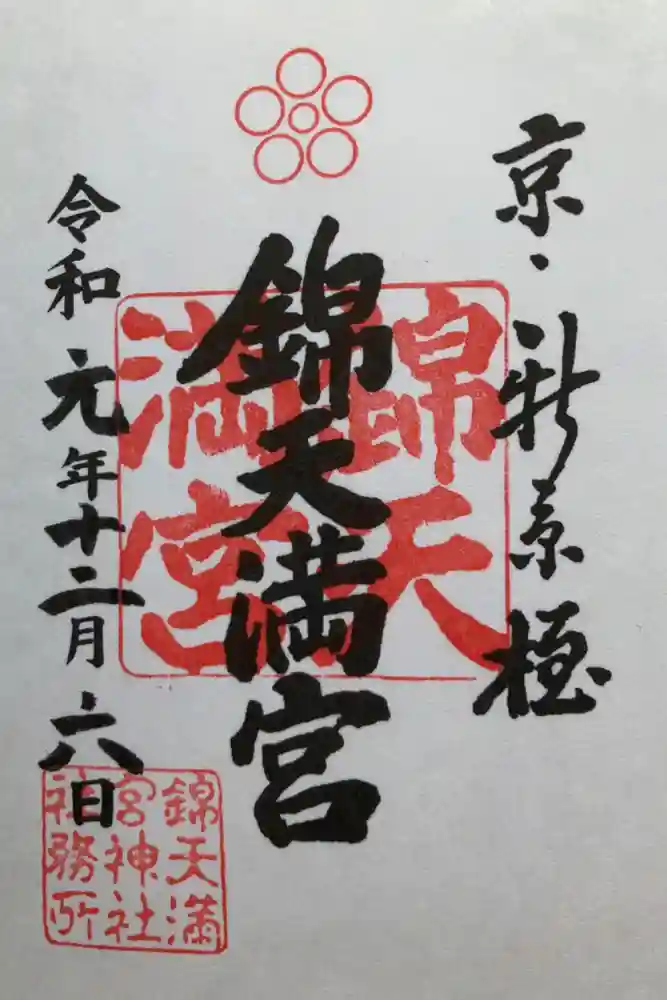 京・新京極
錦天満宮
令和元年十二月六日
錦天
満宮
錦天満
宮神社
社務所